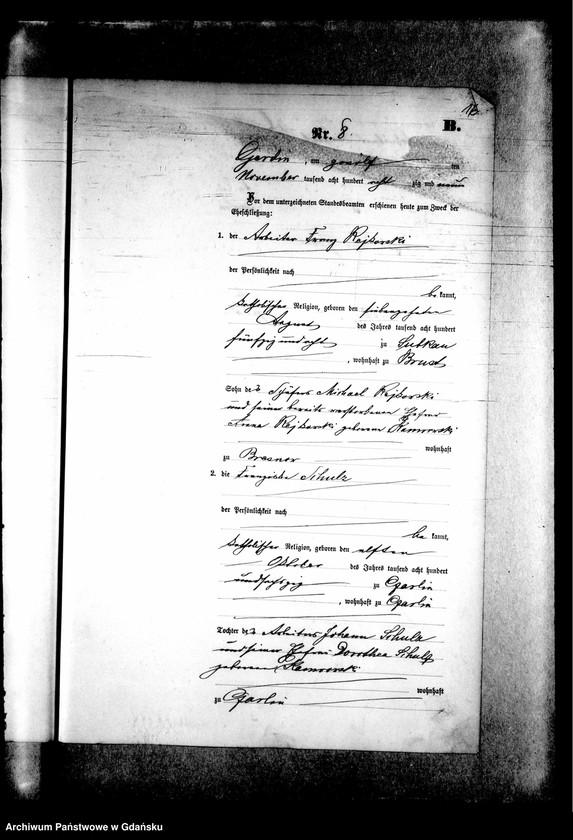 B.
Nr. 8.
am zwölf ten
November tausend acht hundert acht zig und neun
Vor dem unterzeichneten Standesbeamten erschienen heute zum Zweck der
Eheschließung:
1. der Arbeiter Franz Rajkowski
der Persönlichkeit nach
be kannt,
katholischer Religion, geboren den siebenzehnten
August des Jahres tausend acht hundert
fünfzig und acht zu
, wohnhaft zu
Sohn des Schäfers Michael Rajkowski
und seiner bereits verstorbenen Ehefrau
Anna Rajkowski geborene
wohnhaft
zu
2. die Franziska Schulz
der Persönlichkeit nach
be kannt,
katholischer Religion, geboren den elften
Oktober des Jahres tausend acht hundert
und sechszig zu
, wohnhaft zu
Tochter des Arbeiters Johann Schulz
und seiner Ehefrau Dorothea Schulz
geborene
wohnhaft
zu
Archiwum Państwowe w Gdańsku